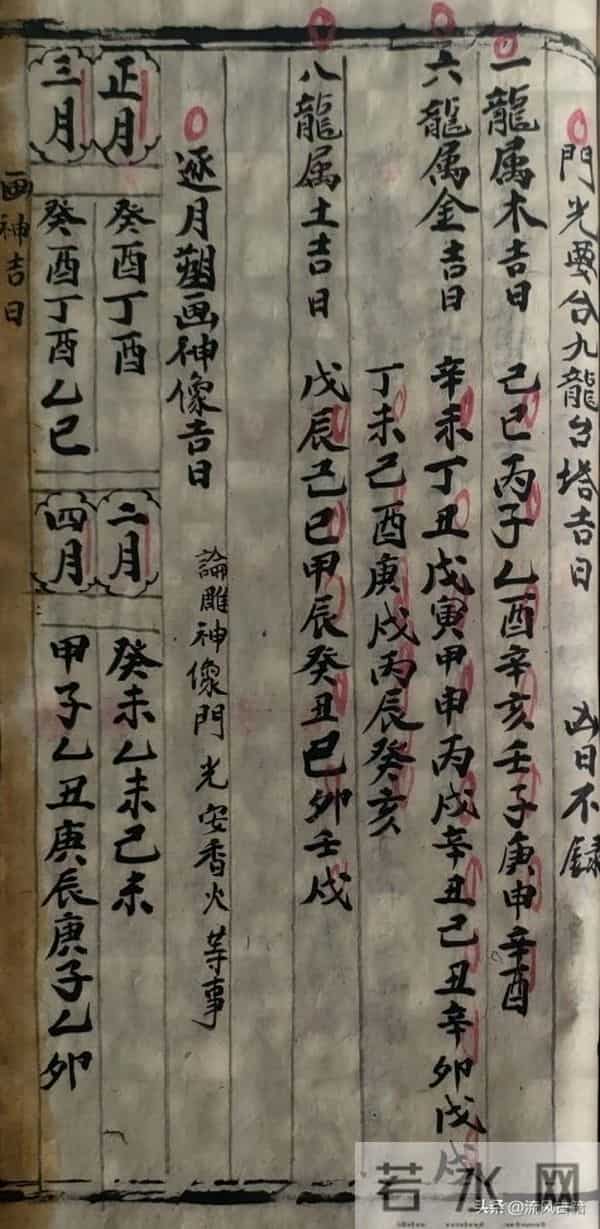 門光要台九龍台塔吉日 凶日不録
一龍属木吉日 己巳丙子乙酉辛亥壬子庚申辛酉
六龍属金吉日 辛未丁丑戊寅甲申丙戌辛丑己丑辛卯戊戌
丁未己酉庚戌丙辰癸亥
八龍属土吉日 戊辰己巳甲辰癸丑巳卯壬戌
逐月塑画神像吉日 論雕神像門光安香火等事
正月 癸酉丁酉
二月 癸未乙未己未
三月 癸酉丁酉乙巳
四月 甲子乙丑庚辰庚子乙卯
画神吉日
若水网
头条@流风古韵